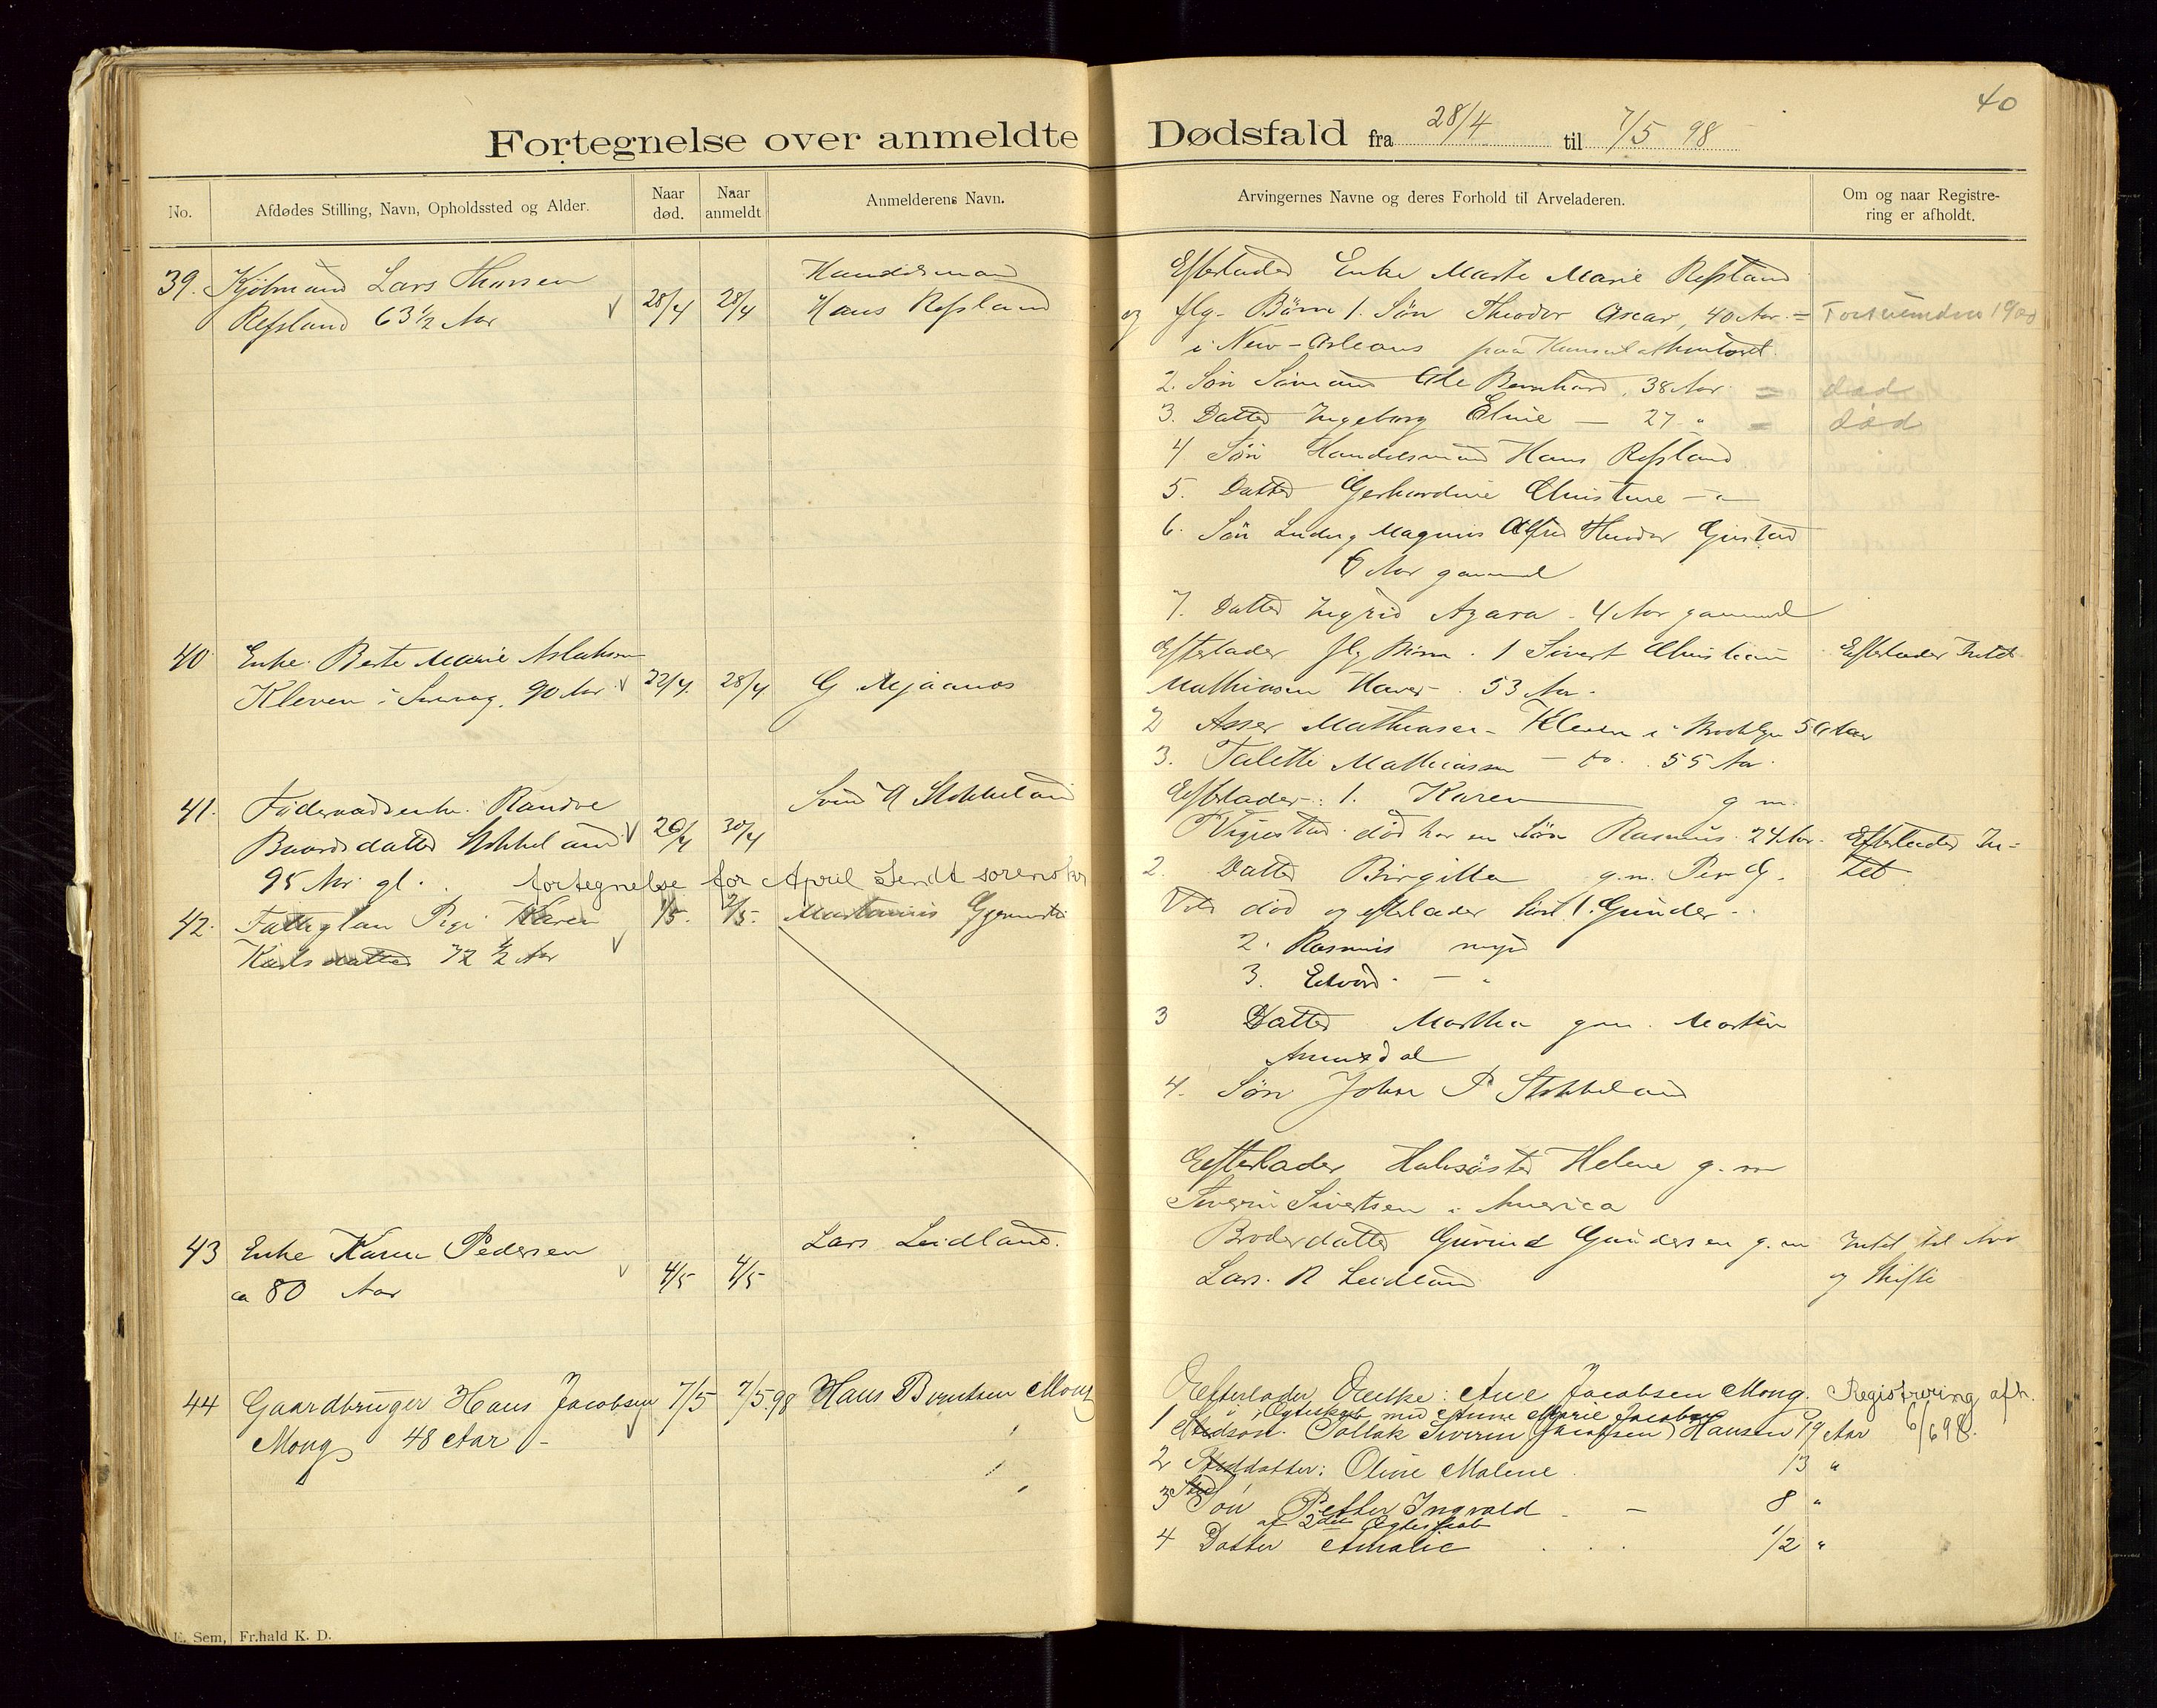 40
Fortegnelse over anmeldte Dødsfald fra 28/4 til 7/5 98
No.
Afdødes Stilling, Navn, Opholdssted og Alder.
Naar død.
Naar anmeldt
Anmelderens Navn.
Arvingernes Navne og deres Forhold til Arveladeren.
Om og naar Registre-
ring er afholdt.
39. Kjøbmand Lars Thorsen
Refsland 63 1/2 Aar
28/4 28/4
Handelsmand
Hans Refsland
Efterlader Enke Marte Marie Refsland
og flg. Børn 1. Søn Theodor Oscar, 40 Aar =
i New-Orleans paa
2. Søn Sømand Ole Bernhard, 38 Aar = død
3. Datter Ingeborg Eline — 27 " = død
4 Søn Handelsmand Hans Refsland
5. Datter Gerhardine Christine — "
6. Søn Ludvig Magnus Alfred Theodor Gustav
6 Aar gammel
7. Datter Ingrid Azara. 4 Aar gammel
40 Enke Berte Marie Aslaksen
Kleven i 90 Aar
22/4. 28/4
G Mjaanos
Efterlader flg Børn. 1 Sivert Christian
Mathiasen 53 Aar.
2 Asser Mathiasen - Kleven i Brooklyn 56 Aar
3. Talette Mathiassen — do. 55 Aar.
Efterlader Intet
41. Føderaadsenke Randve
Baardsdatter Stokkeland
95 Aar gl.
26/4 30/4
Svend A Stokkeland
Efterlader: 1. Karen g m.
T Vigestad død har en Søn Rasmus 24 Aar.
2. Datter Birgitta g.m. Per G.
død og efterlader 1. Gunder
2. Rasmus myn
3. Edvard — "
3 Datter Martha gm. Morten
Aamodal
4. Søn John P Stokkeland
Efterlader In=
tet
fortegnelse for April sendt sorenskr
42. Fattiglem Pige Karen
Karlsdatter 72 1/2 Aar
1/5. 2/5.
Efterlader Halvsøster Helene g. m
Severin Sivertsen i America
43 Enke Karen Pedersen
ca 80 Aar
4/5 4/5
Lars Leidland.
Broderdatter Gurine Gundersen g. m
Lars. R Leidland
Intet til Arv
og Skifte
44 Gaardbruger Hans Jacobsen
Mong 48 Aar -
7/5 7/5.98
Hans Berntsen Mong
Efterlader Enke: Ane Jacobsen Mong.
i Ægteskab med Anne Marie Jacobsen
1 Stedsøn. Tollak Severin (Jacobsen) Hansen 19 Aar
2 Steddatter: Oline Malene 13 "
3 Sted Søn Petter Ingvald - 8 "
af 2det Ægteskab
4 Datter Amalie 1/2 "
Registrering afh.
6/6 98.
E. Sem, Fr.hald K. D.